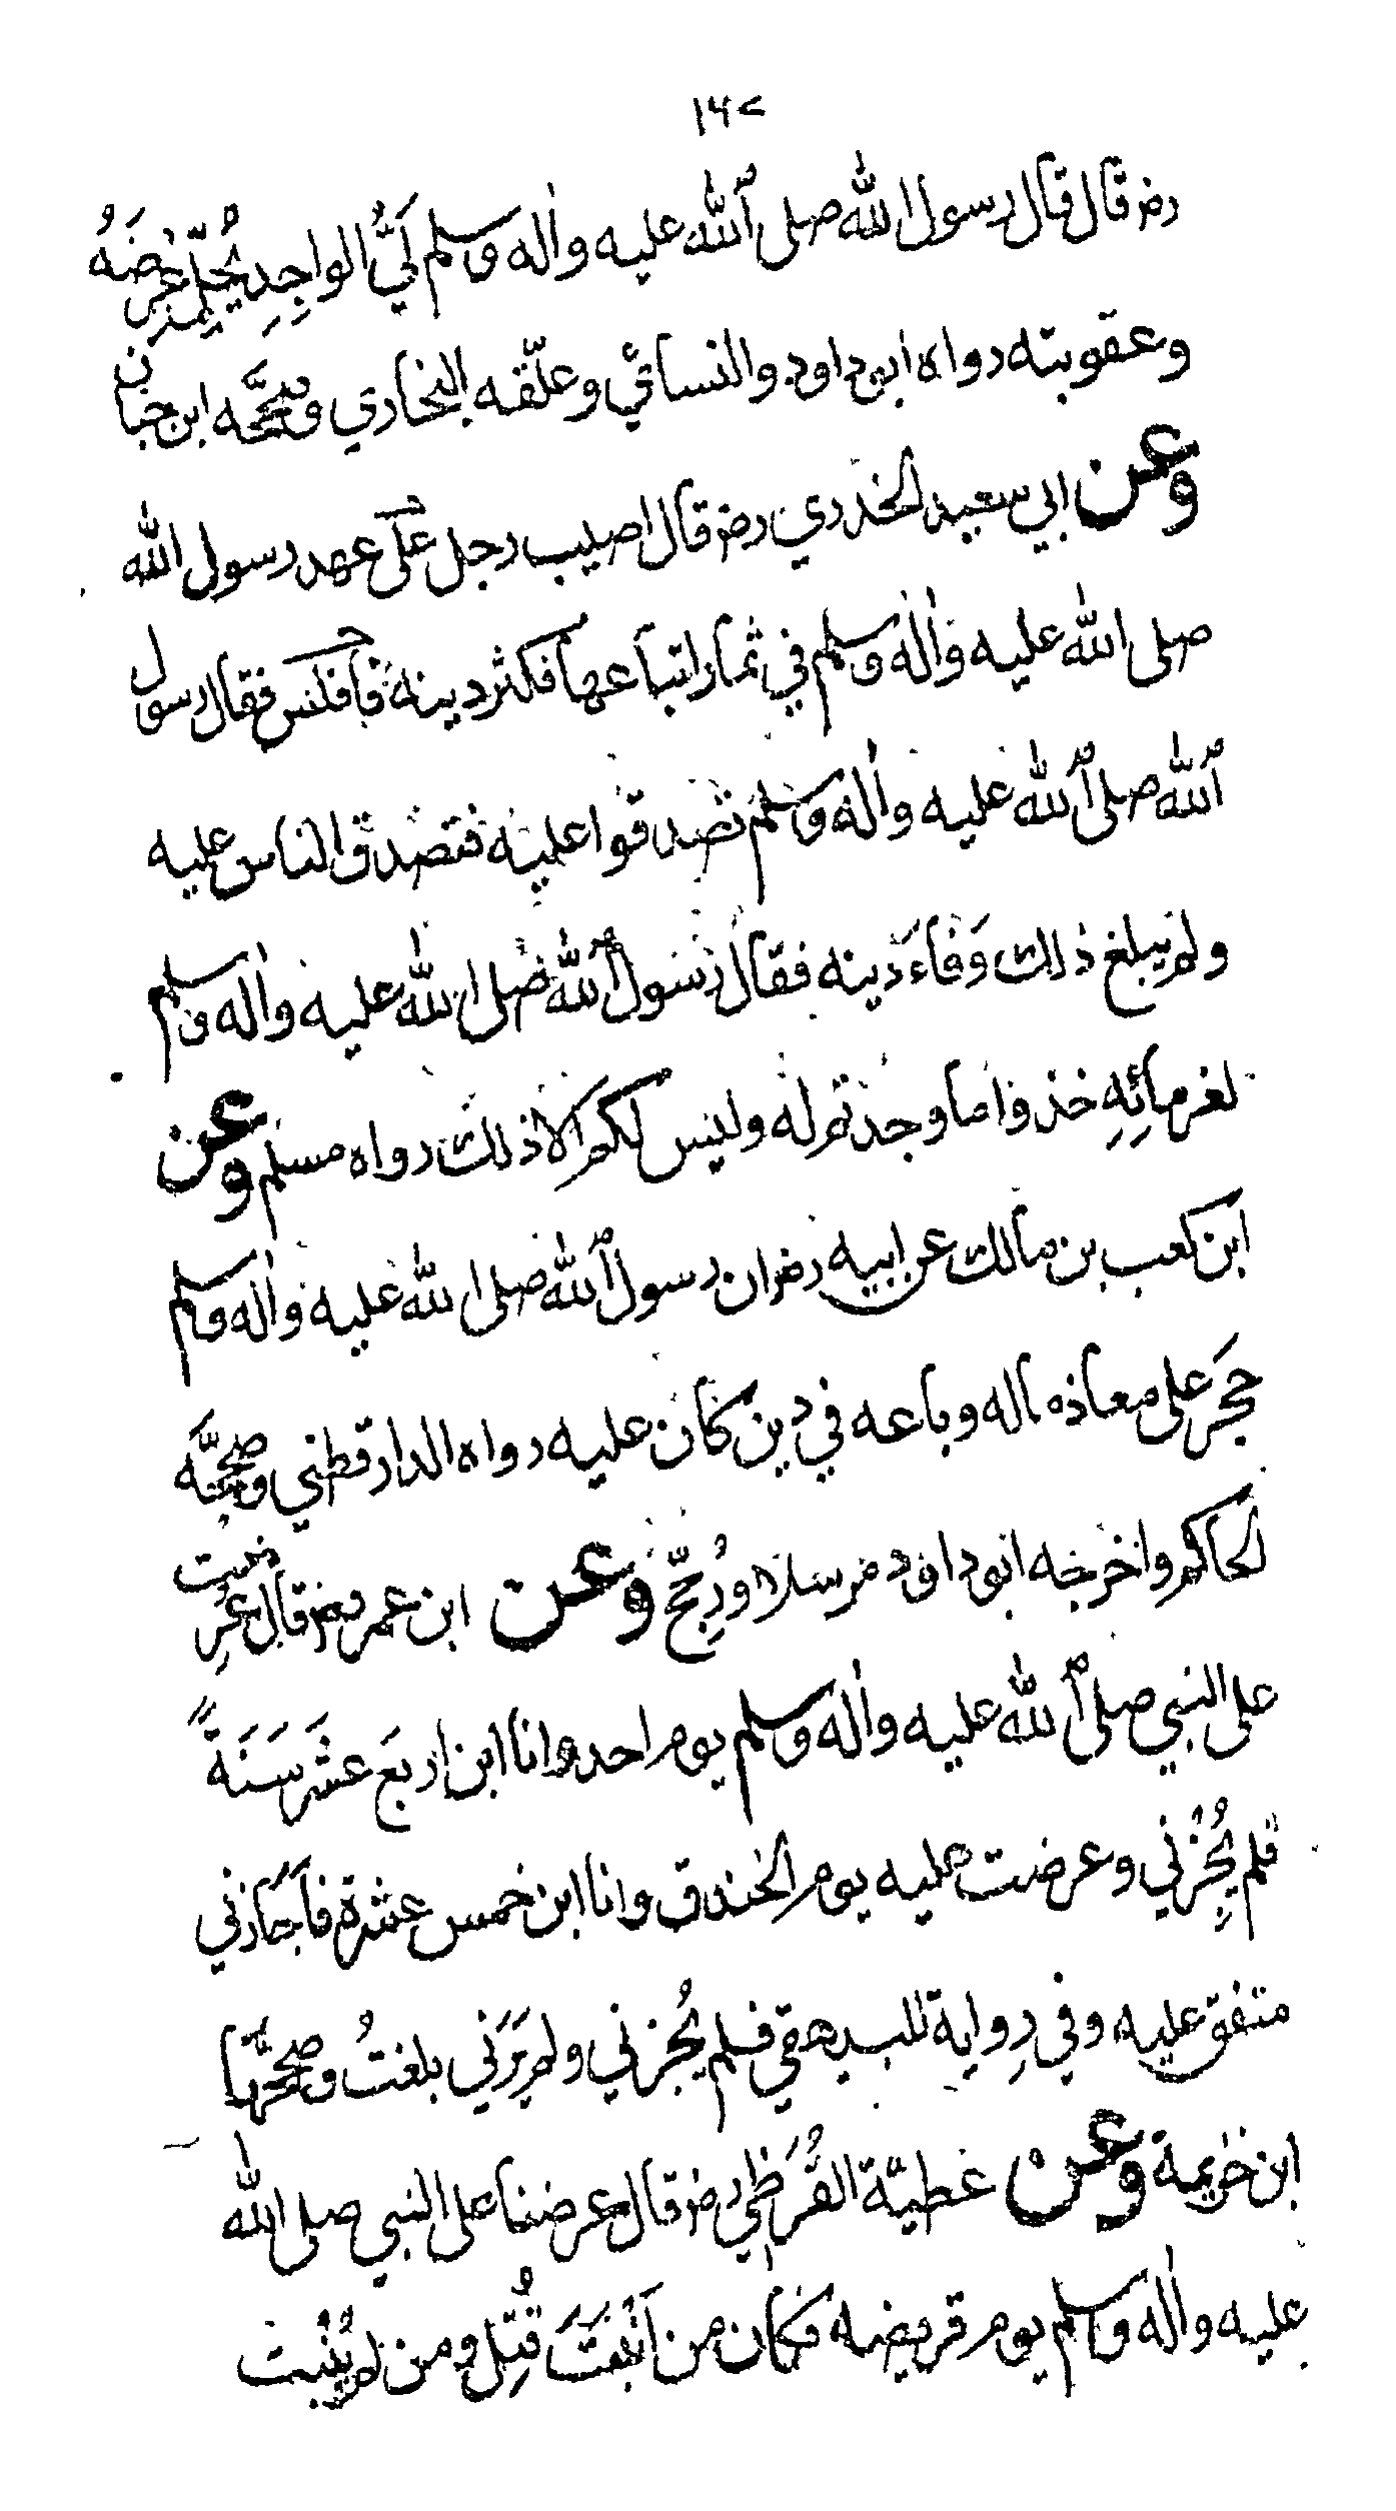 ١٤٢
رض قال قال رسول الله صلى الله عليه واله وسلم لَيُّ الواجِدِ يُحِلّ عِرْضَهُ
وعقوبته رواه ابو داود والنسائي وعلّقه البخاري وصحَّحه ابن حبان
وعن ابي سعيد الخدري رض قال اصيب رجل على عهد رسول الله
صلى الله عليه واله وسلم في ثمار ابتاعها فكثر دينه فافلس فقال رسول
الله صلى الله عليه واله وسلم تصدقوا عليه فتصدق الناس عليه
ولم يبلغ ذلك وَفاءَ دينه فقال رسول الله صلى الله عليه واله وسلم
لغرمائِهِ خذوا ما وجدتم له وليس لكم الا ذلك رواه مسلم وعن
ابن كعب بن مالك عن ابيه رض ان رسول الله صلى الله عليه واله وسلم
حَجَر على معاذ ماله وباعه في دين كان عليه رواه الدارقطني وصححَّه
الحاكم واخرجه ابو داود مرسلا ورُجِّح وعن ابن عمر رض قال عُرِضت
على النبي صلى الله عليه واله وسلم يوم احد وانا ابن اربعَ عشرَ سَنَةً
فلم يُجِزْني وعرضت عليه يوم الخندق وانا ابن خمس عشرة فأجَازني
متفق عليه وفي رِواية للبيهقي فلم يُجزني ولم يَرَني بلغتُ وصحَّحها
ابن خزيمة وعن عطيّة القُرَظي رض قال عرضنا على النبي صلى الله
عليه واله وسلم يوم قريضه فكان من اَنْبَتَ قُتِل ومن لم يُنْبِت